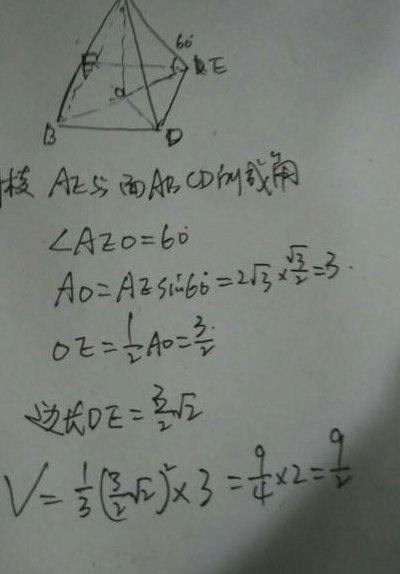 60°
E
F
O
B
D
棱 AE与面ABCD所成角
∠AEO=60°
AO=AEsin60°=2√3×√3/2=3.
OE=1/2AO=3/2
边长DE=3/2√2
V=1/3(3/2√2)²×3=9/4×2=9/2